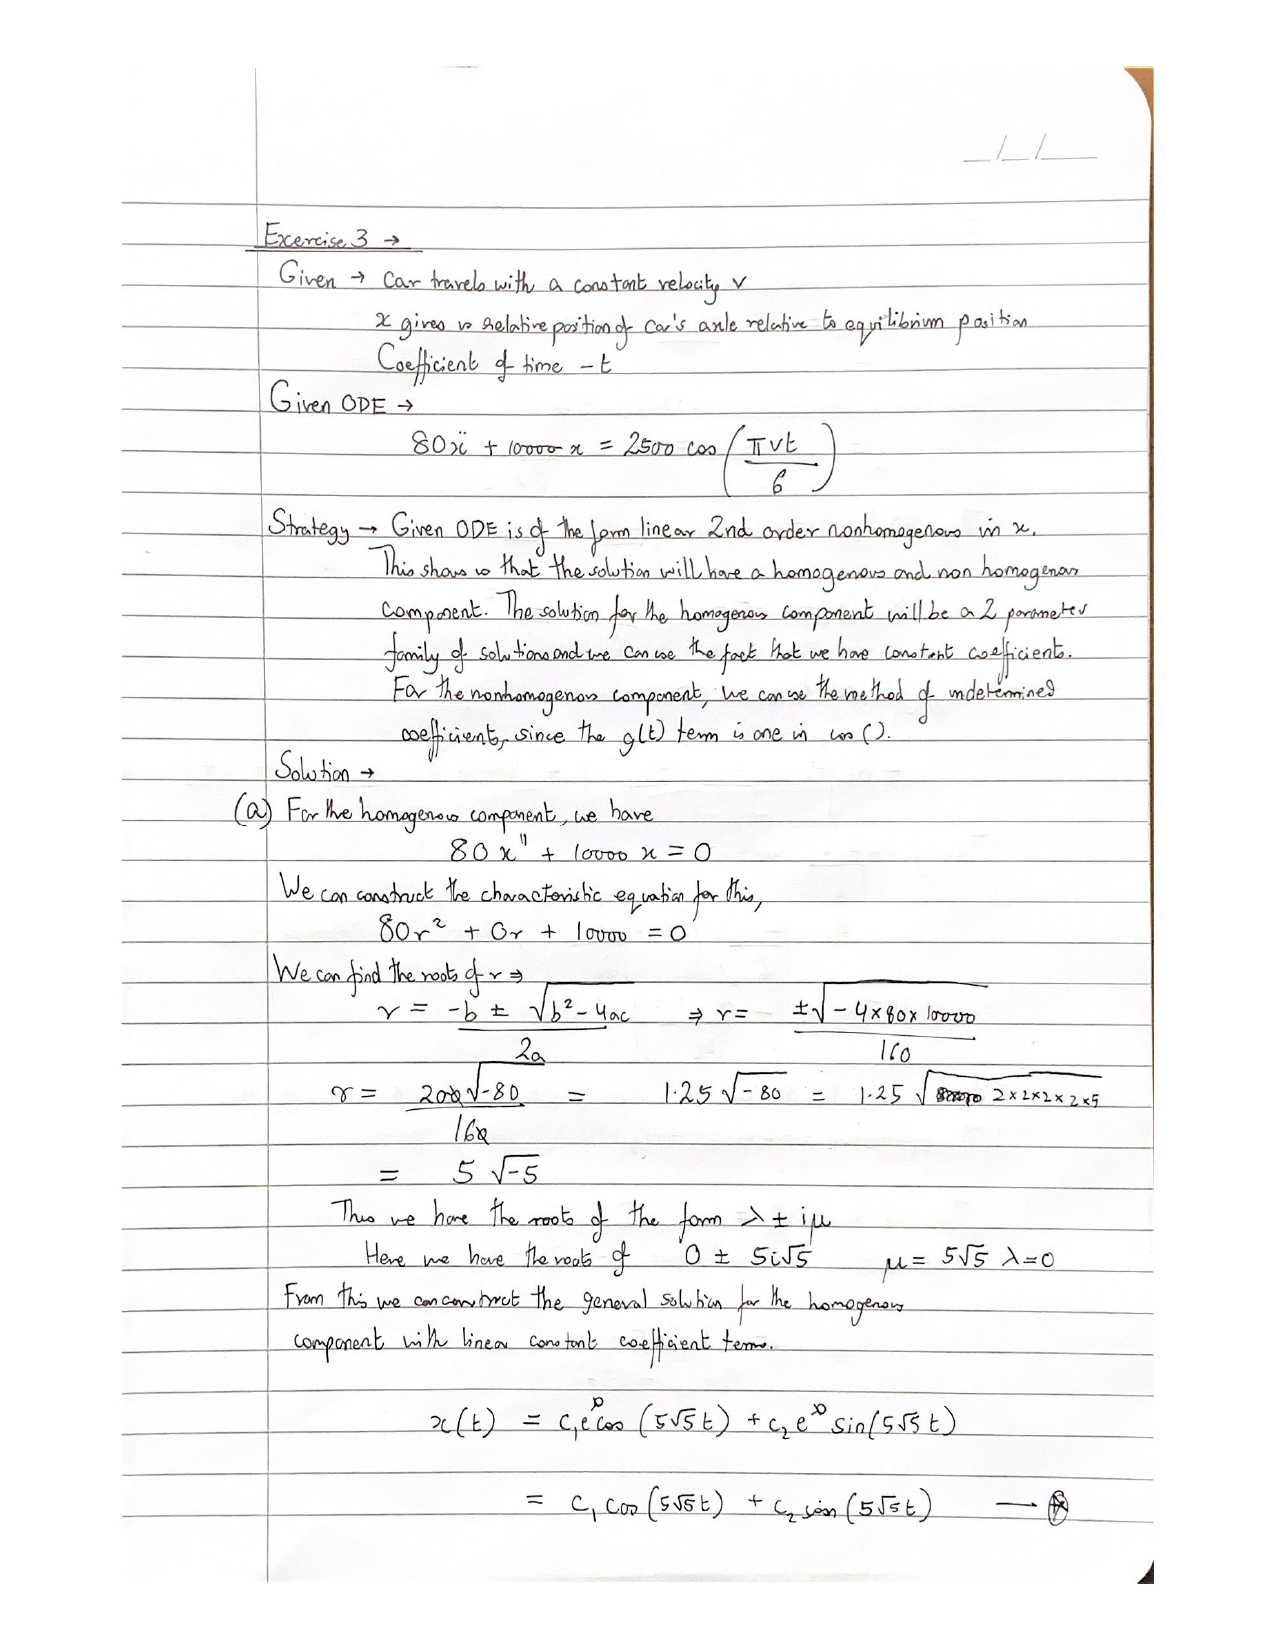 Exercise 3 →
Given → Car travels with a constant velocity v
x gives us relative position of car's axle relative to equilibrium position
Coefficient of time - t
Given ODE →
80ẍ + 10000 x = 2500 cos (πvt/6)
Strategy → Given ODE is of the form linear 2nd order nonhomogenous in x.
This shows us that the solution will have a homogenous and non homogenous
component. The solution for the homogenous component will be a 2 parameter
family of solutions and we can use the fact that we have constant coefficients.
For the nonhomogenous component, we can use the method of undetermined
coefficients, since the g(t) term is one in cos ().
Solution →
(a) For the homogenous component, we have
80 x'' + 10000 x = 0
We can construct the characteristic equation for this,
80r² + 0r + 10000 = 0
We can find the roots of r ⇒
r = -b ± √(b² - 4ac) / 2a ⇒ r = ±√(-4×80×10000) / 160
r = 200√-80 / 160 = 1.25 √-80 = 1.25 √2×2×2×2×5
= 5 √-5
Thus we have the roots of the form λ ± iμ
Here we have the roots of 0 ± 5i√5 μ = 5√5 λ = 0
From this we can construct the general solution for the homogenous
component with linear constant coefficient terms.
x(t) = c₁e⁰cos (5√5t) + c₂e⁰ sin(5√5t)
= c₁ cos (5√5t) + c₂ sin (5√5t) —